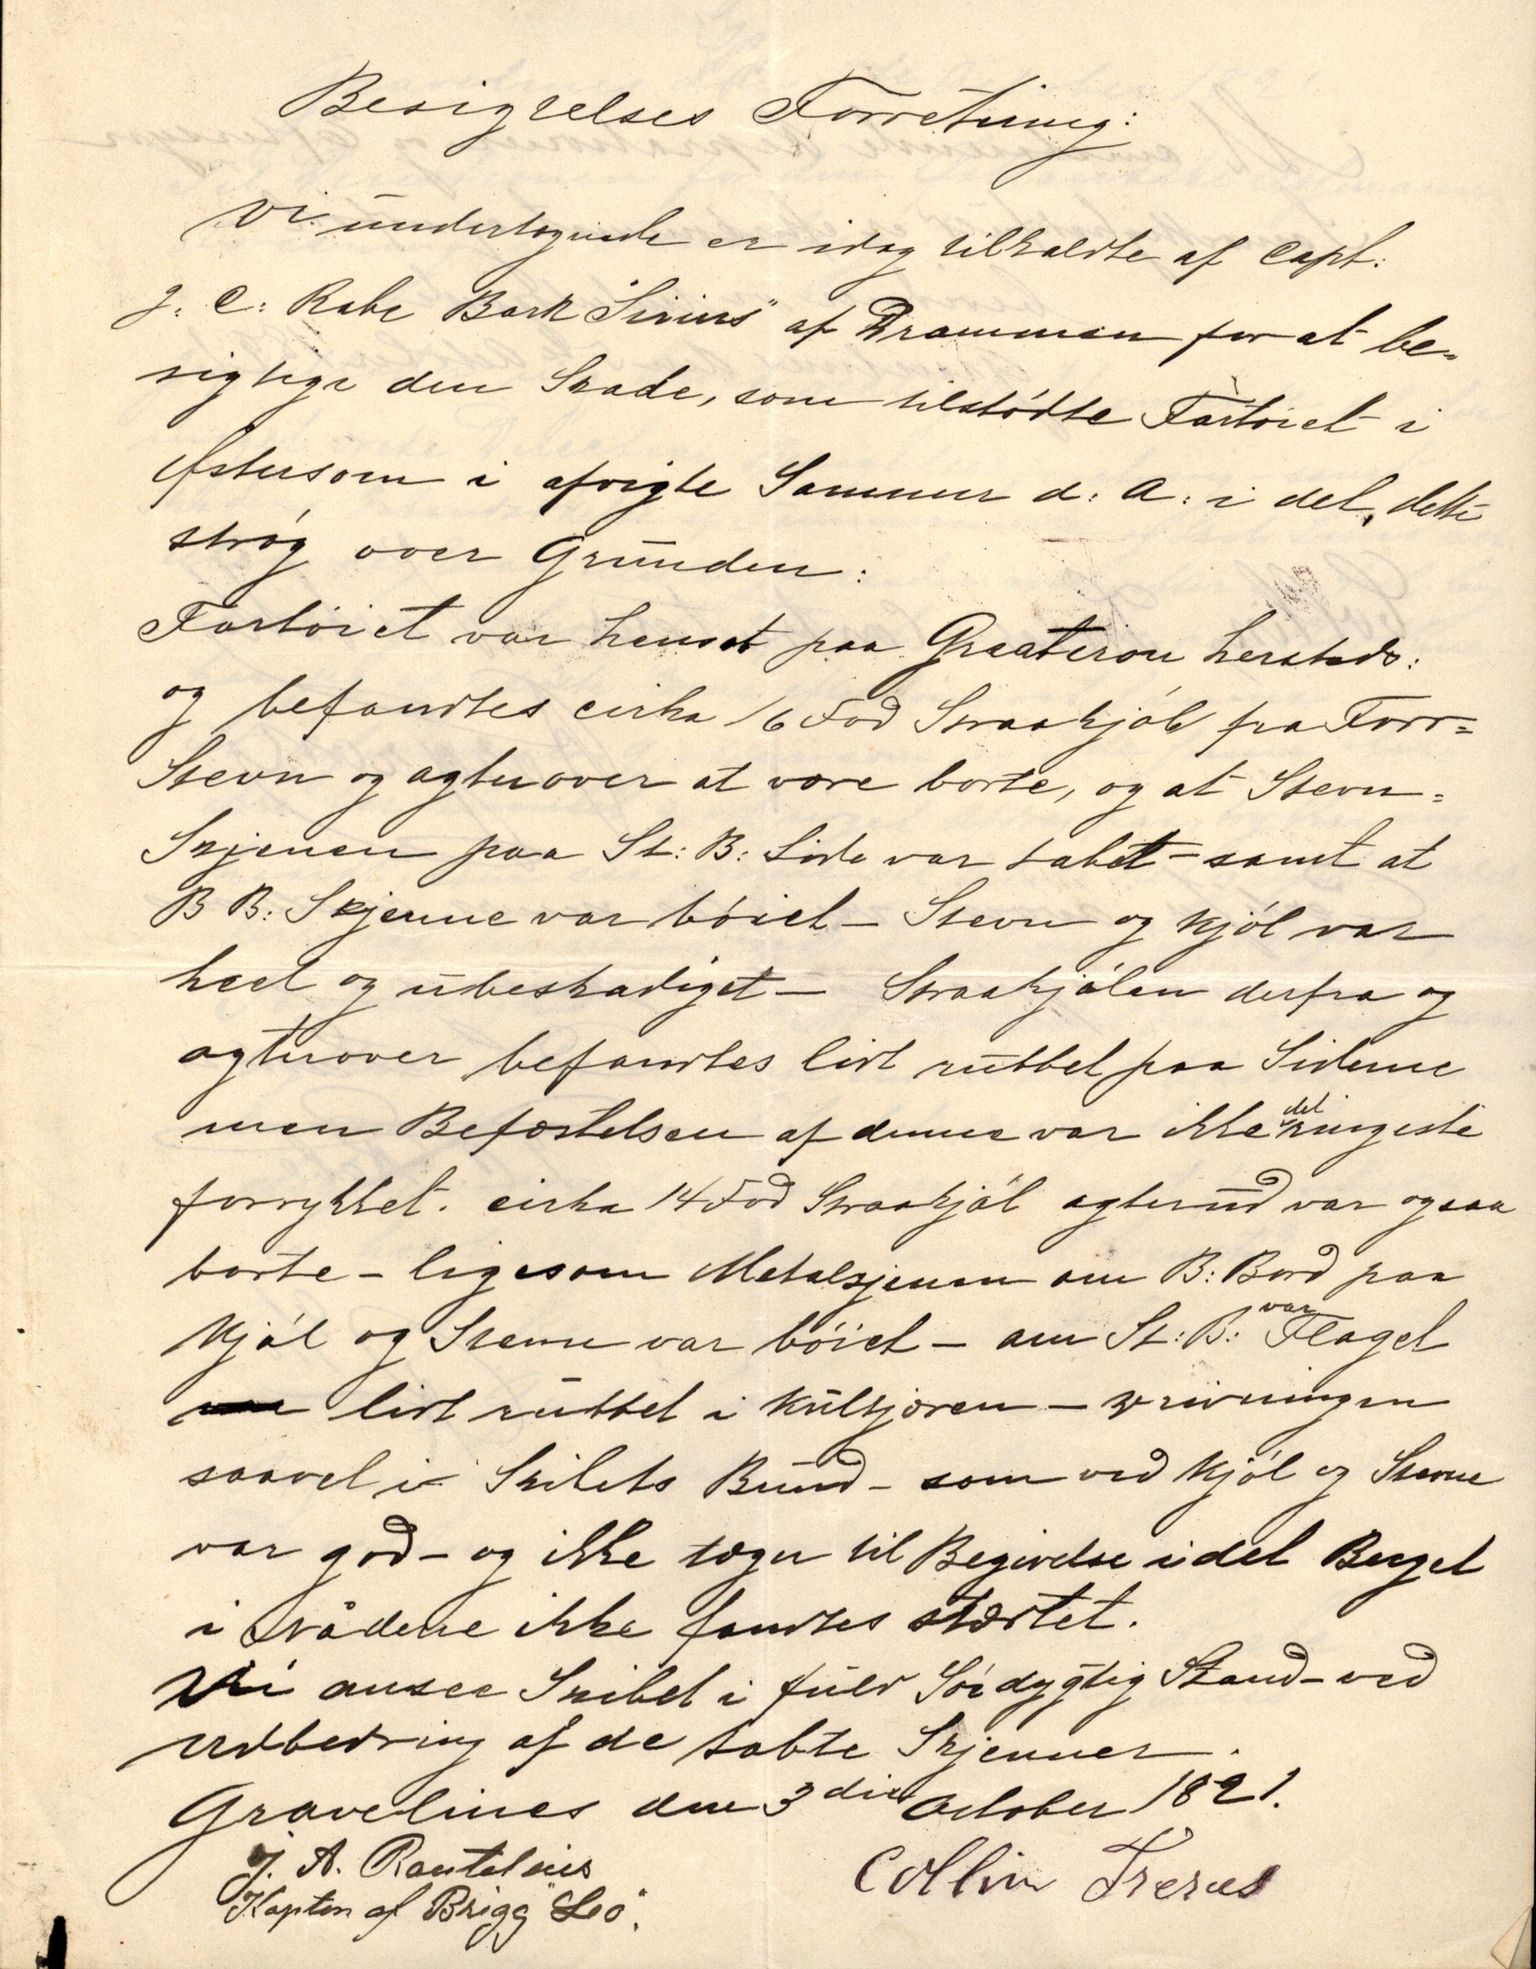 Besigtelses Forretning:
Vi undertegnede er idag tilkaldte af Capt:
J: C: Rabe Bark "Sirius" af Drammen for at be=
sigtige den Skade, som tilstødte Fartøiet i
Østersøen i afvigte Sommer d: A: i det, dette
strøg over Grunden:
Fartøiet var hensat paa hersteds:
og befandtes cirka 16 Fod Straakjöl fra Forr=
Stevn og agterover at være borte, og at Stevn=
Skjenen paa St: B: Side var tabet – samt at
B B: Skjenne var böiet – Stevn og Kjöl var
heel og ubeskadiget – Straakjölen derfra og
agterover befandtes lidt ruttet paa Siderne
men Befæstelsen af denne var ikke det ringeste
forrykket. cirka 14 Fod Straakjöl agterud var ogsaa
borte – ligesom Metalskjenen om B: Bord paa
Kjöl og Stevn var böiet – om St: B: var Flaget
lidt ruttet i Kulkjøren – Drivningen
saavel i Skibets Bund – som ved Kjöl og Stevne
var god – og ikke tegn til Begivelse i det Beeget
i Nådene ikke fandtes stærtet.
Vi ansee Skibet i fuld Söedygtig Stand – ved
Udbedring af de tabte Skjenner.
Gravelines den 3die October 1891.
J. A. Rantelnies
Kapten af Brigg "Leo".
Collin Freres